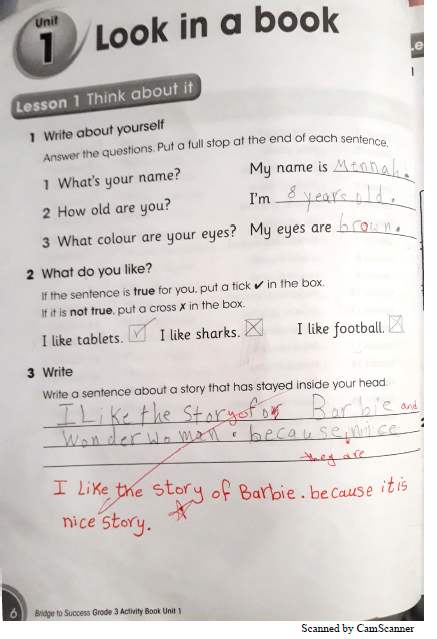 Unit
1
Look in a book
Lesson 1 Think about it
1 Write about yourself
Answer the questions. Put a full stop at the end of each sentence.
1 What's your name? My name is Mennah.
2 How old are you? I'm 8 years old.
3 What colour are your eyes? My eyes are brown.
2 What do you like?
If the sentence is true for you, put a tick ✔ in the box.
If it is not true, put a cross ✗ in the box.
I like tablets. ✓ I like sharks. ✗ I like football. ✗
3 Write
Write a sentence about a story that has stayed inside your head.
I Like the story of Barbie and
Wonder woman. because nice
they are
I Like the story of Barbie. because it is
nice story.
6 Bridge to Success Grade 3 Activity Book Unit 1
Scanned by CamScanner